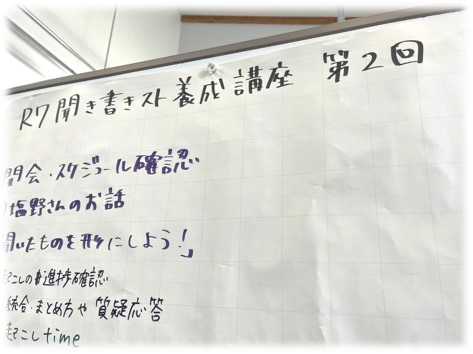 R7 聞き書きスト養成講座 第2回
開会・スケジュール確認
塩野さんのお話
聞いたものを形にしよう!」
起こしの進捗確認
統合・まとめ方や質疑応答
起こしtime